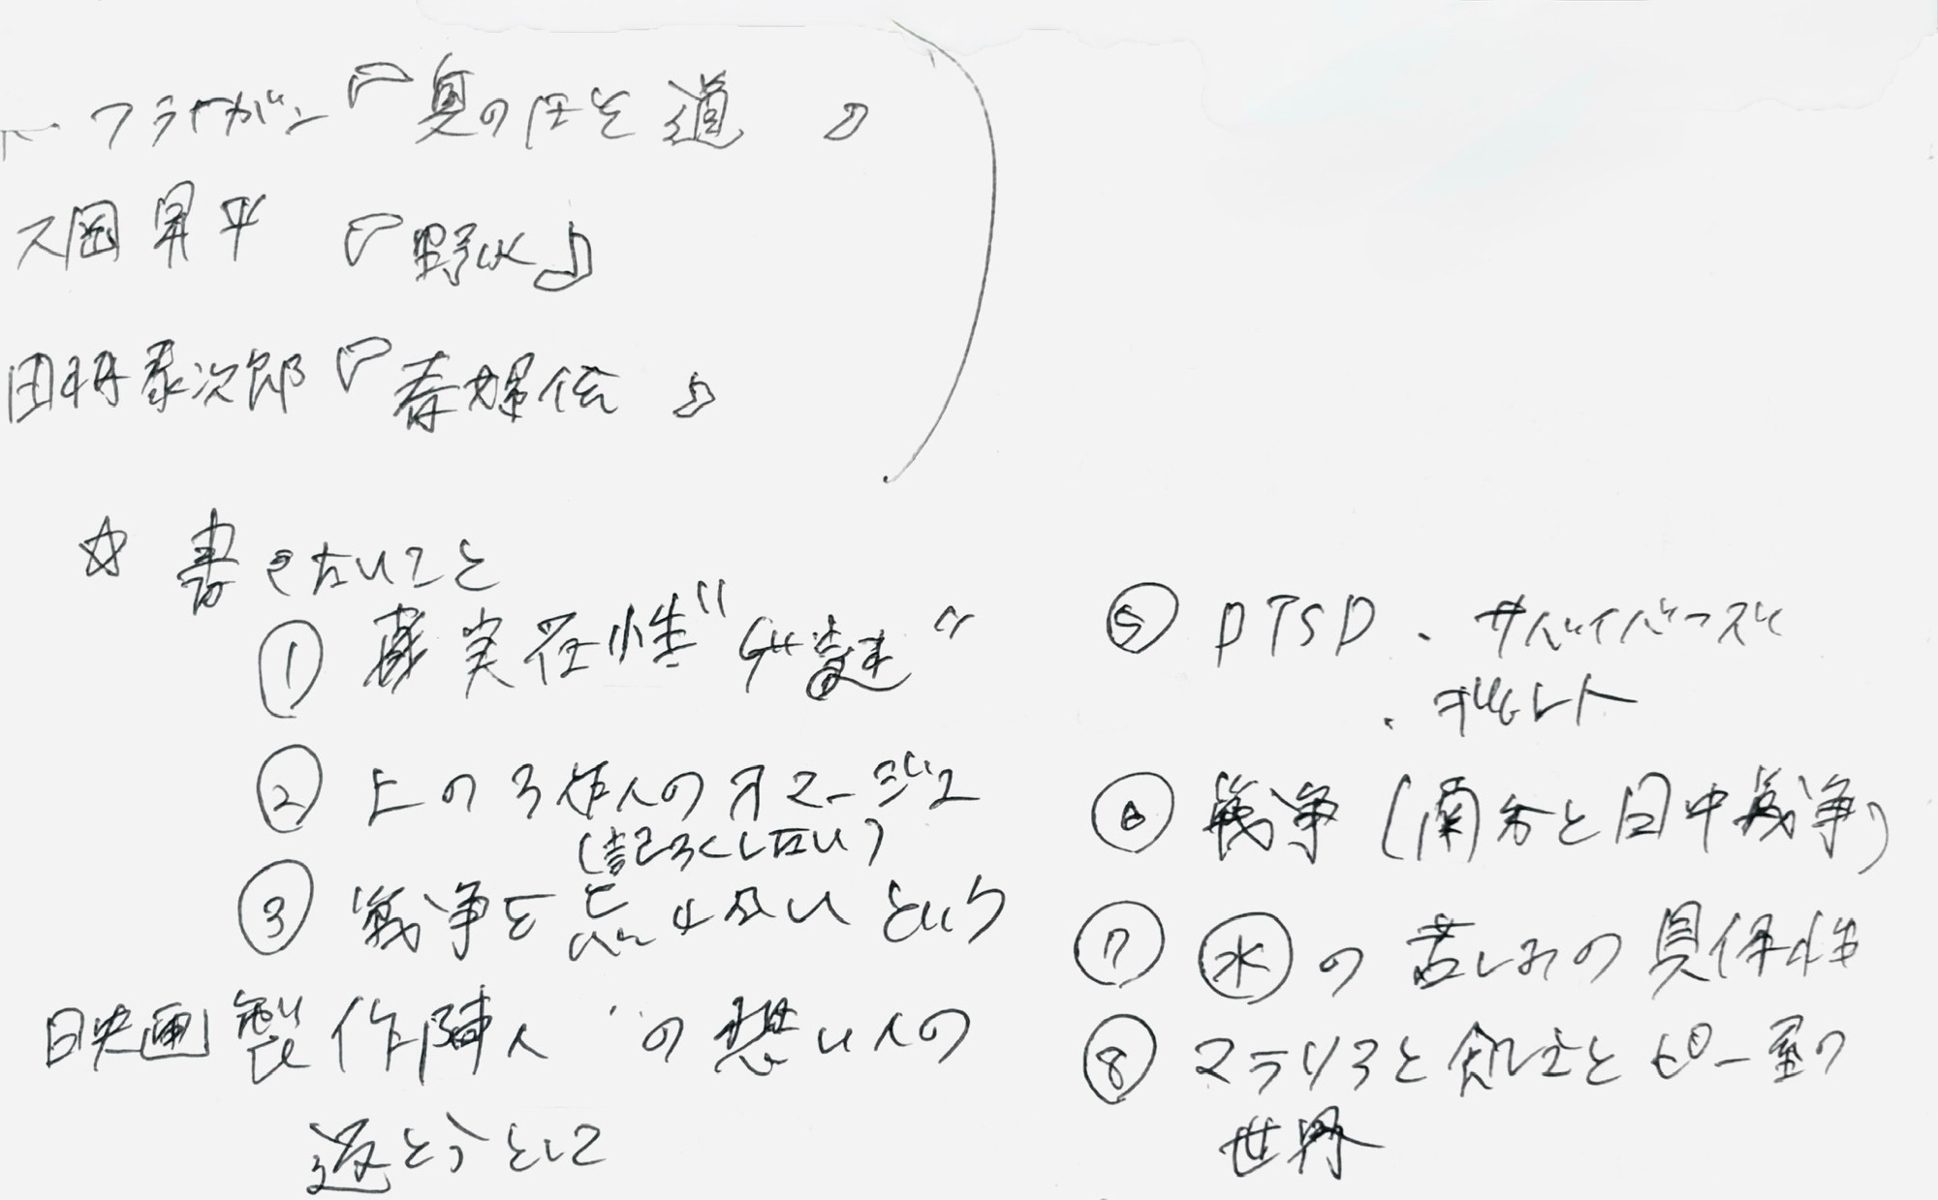 ト・フラナガン『奥のほそ道』
大岡昇平『野火』
田村泰次郎『春婦伝』
☆ 書きたいこと
① 真実在性
② 上の3作へのオマージュ
(記ろくしたい)
③ 戦争を忘れないという
映画製作陣への想いへの
返とうとして
⑤ PTSD・サバイバーズ
・ギルト
⑥ 戦争(南方と日中戦争)
⑦ 水の苦しみの具体性
⑧ マラリアと飢えとピー屋の
世界